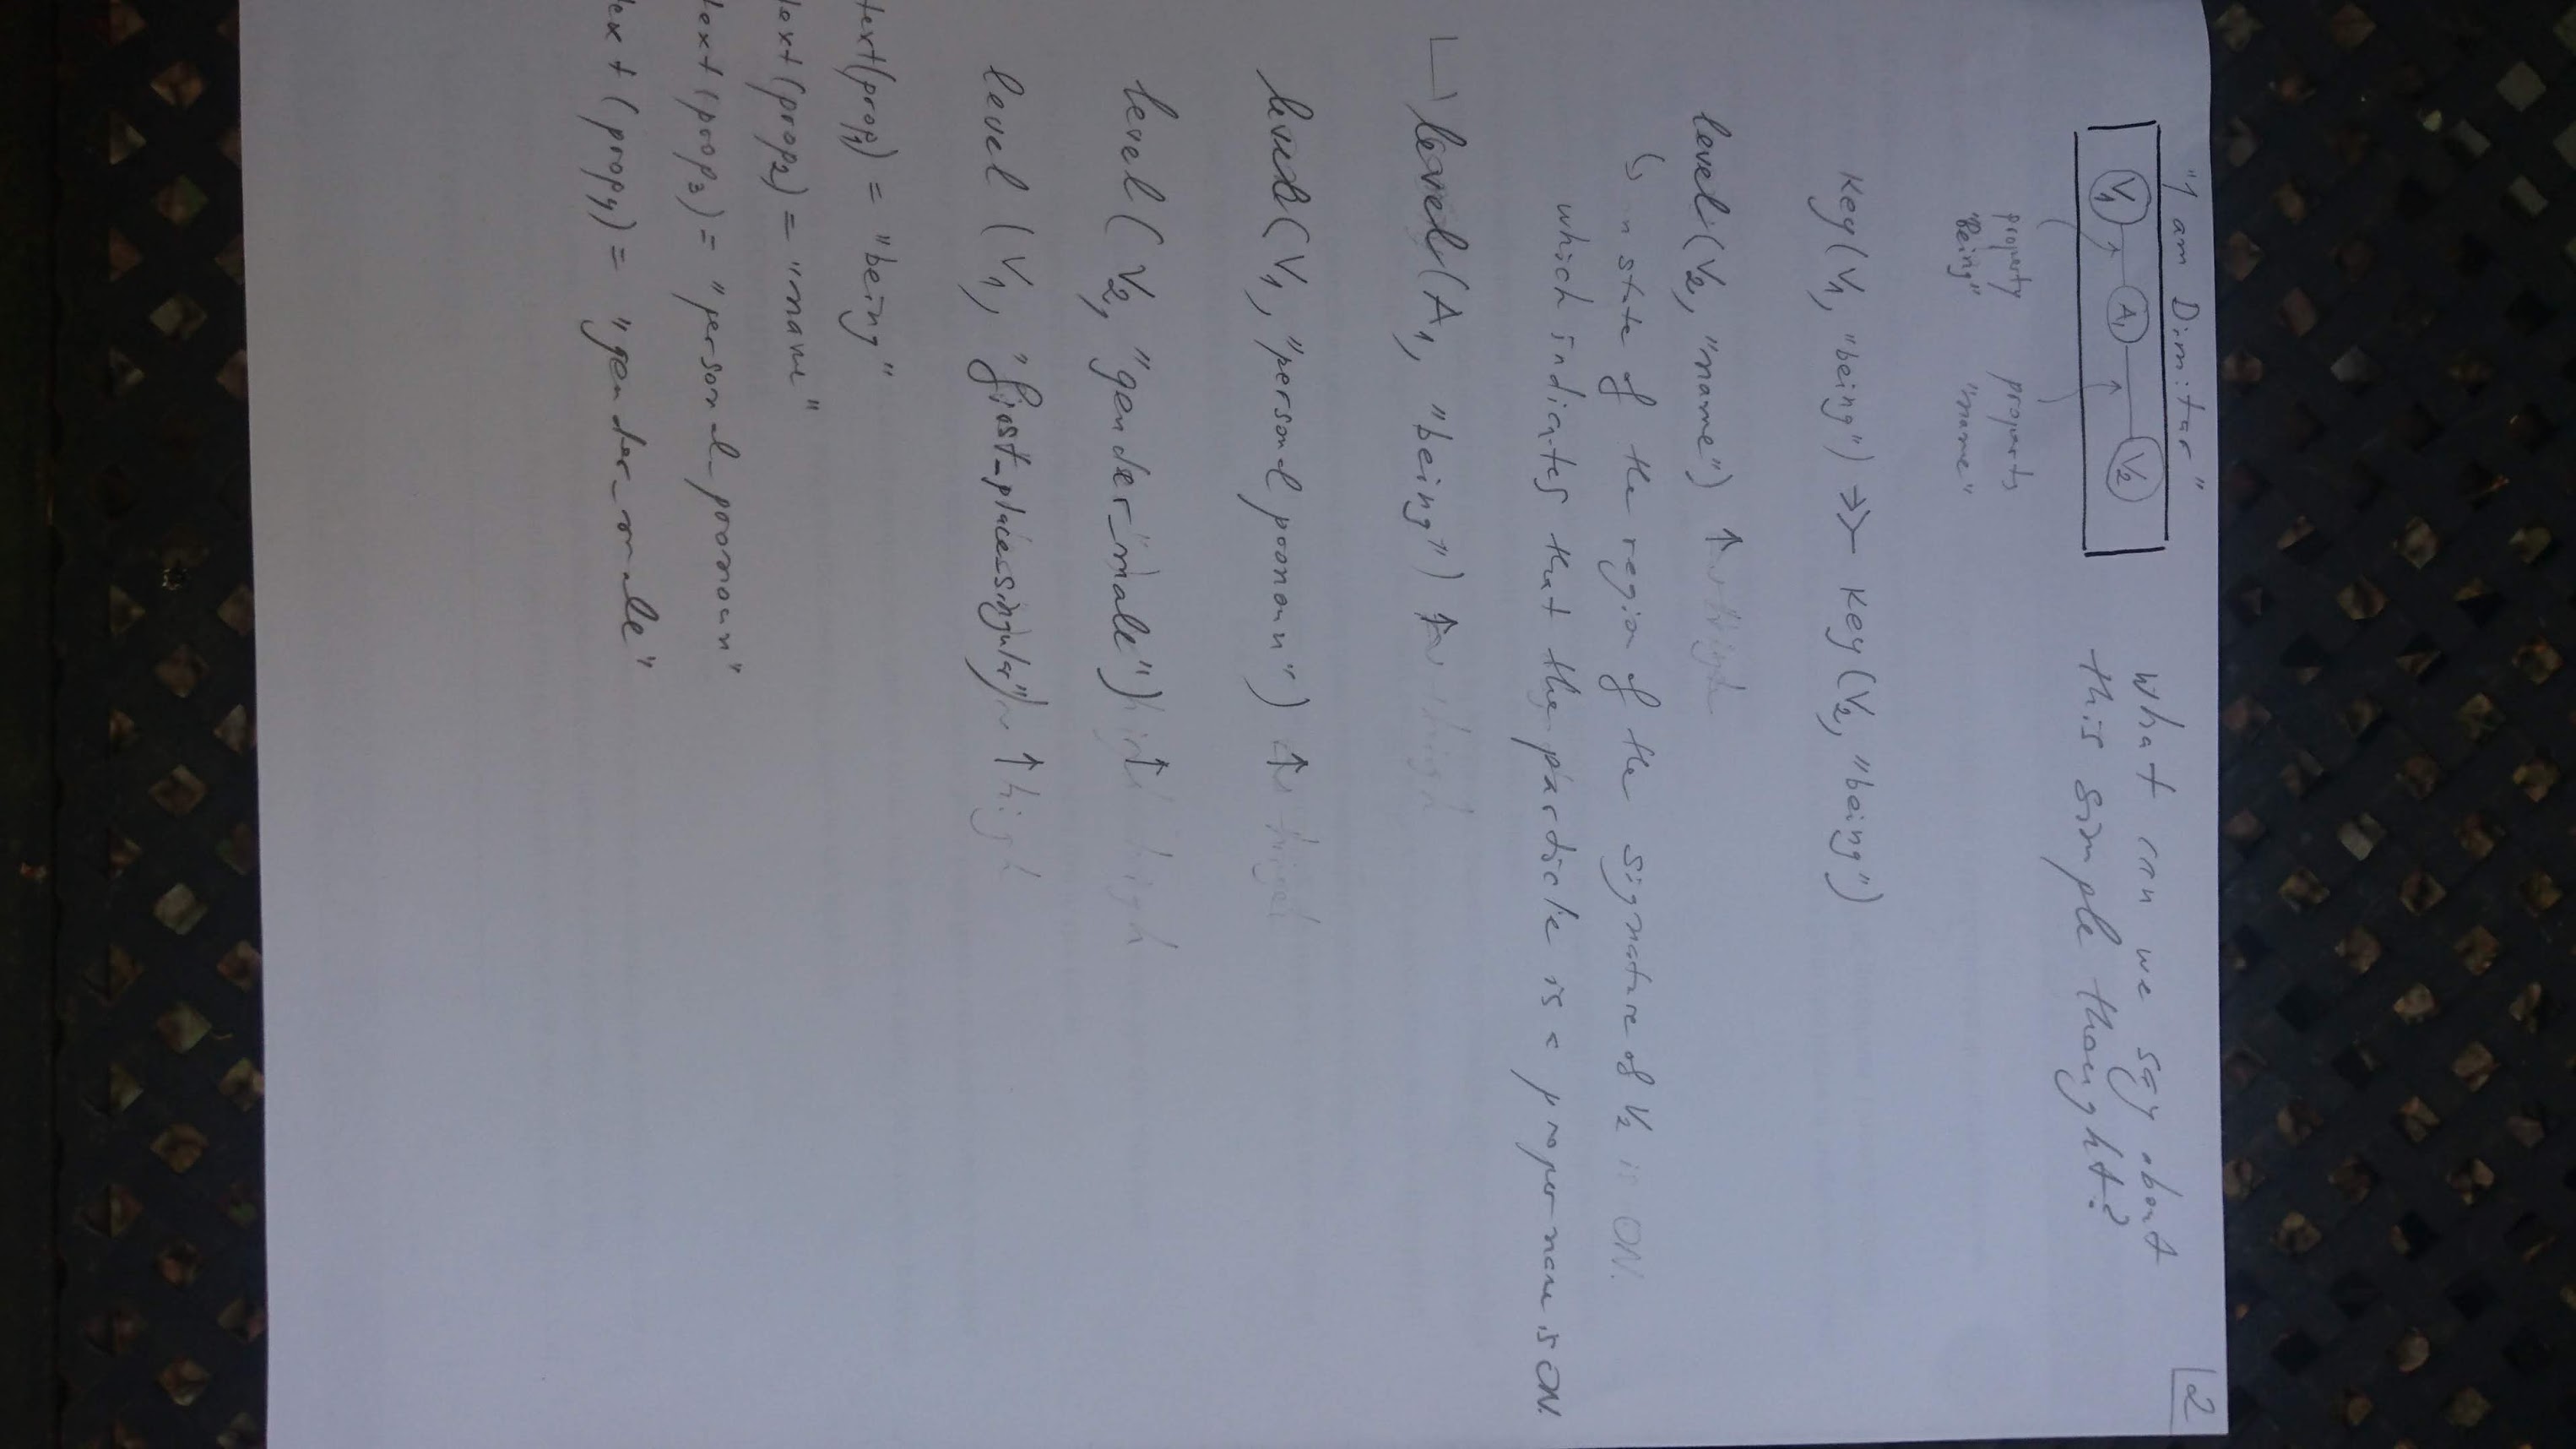 2
"I am Dimitar"
What can we say about
this simple thought?
V1 A1 V2
property property
"Being" "name"
key(V1, "being") =>> key(V2, "being")
level(V2, "name") ↑ high
state of the region of the signature of V2 is ON.
which indicates that the particle is a proper name is ON.
level(A1, "being") ↑ high
level(V1, "personal pronoun") ↑ high
level(V2, "gender_male") ↑ high
level(V1, "first_place_singular") ↑ high
text(prop1) = "being"
text(prop2) = "name"
text(prop3) = "personal_pronoun"
text(prop4) = "gender_male"